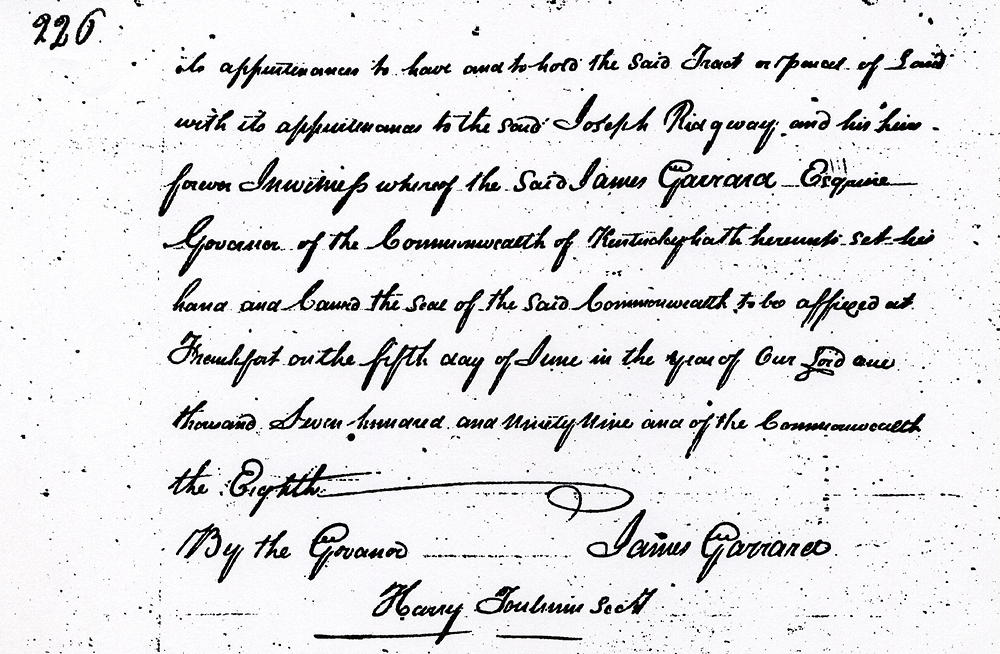 226
its appurtenances to have and to hold the said Tract or parcel of Land
with its appurtenances to the said Joseph Ridgway and his heirs
forever Inwitness whereof the said James Garrard Esquire
Governor of the Commonwealth of Kentucky hath hereunto set his
hand and Caused the seal of the said Commonwealth to be affixed at
Frankfort on the fifth day of June in the year of Our Lord one
thousand Seven hundred and Ninety Nine and of the Commonwealth
the Eighth
By the Govanor James Garrard
Harry Toulmin Sect